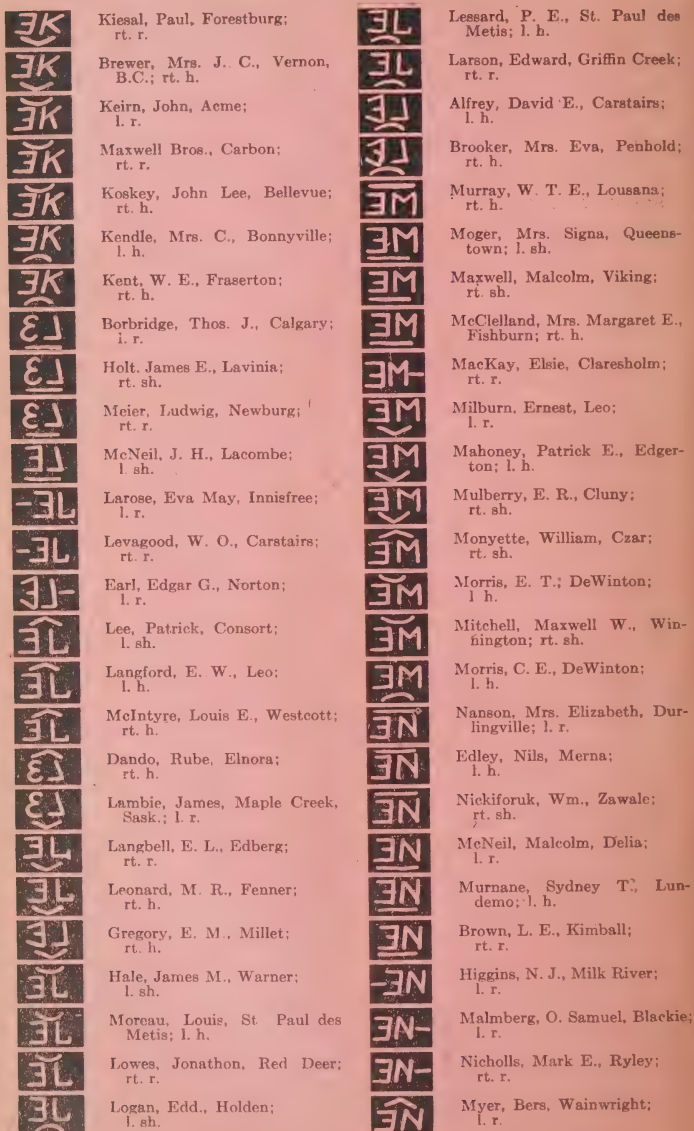 Kiesal, Paul, Forestburg;
rt. r.
Brewer, Mrs. J. C., Vernon,
B.C.; rt. h.
Keirn, John, Acme;
l. r.
Maxwell Bros., Carbon;
rt. r.
Koskey, John Lee, Bellevue;
rt. h.
Kendle, Mrs. C., Bonnyville;
l. h.
Kent, W. E., Fraserton;
rt. h.
Borbridge, Thos. J., Calgary;
l. r.
Holt, James E., Lavinia;
rt. sh.
Meier, Ludwig, Newburg;
rt. r.
McNeil, J. H., Lacombe;
l. sh.
Larose, Eva May, Innisfree;
l. r.
Levagood, W. O., Carstairs;
rt. r.
Earl, Edgar G., Norton;
l. r.
Lee, Patrick, Consort;
l. sh.
Langford, E. W., Leo;
l. h.
McIntyre, Louis E., Westcott;
rt. h.
Dando, Rube, Elnora;
rt. h.
Lambie, James, Maple Creek,
Sask.; l. r.
Langbell, E. L., Edberg;
rt. r.
Leonard, M. R., Fenner;
rt. h.
Gregory, E. M., Millet;
rt. h.
Hale, James M., Warner;
l. sh.
Moreau, Louis, St. Paul des
Metis; l. h.
Lowes, Jonathon, Red Deer;
rt. r.
Logan, Edd., Holden;
l. sh.
Lessard, P. E., St. Paul des
Metis; l. h.
Larson, Edward, Griffin Creek;
rt. r.
Alfrey, David E., Carstairs;
l. h.
Brooker, Mrs. Eva, Penhold;
rt. h.
Murray, W. T. E., Lousana;
rt. h.
Moger, Mrs. Signa, Queens-
town; l. sh.
Maxwell, Malcolm, Viking;
rt. sh.
McClelland, Mrs. Margaret E.,
Fishburn; rt. h.
MacKay, Elsie, Claresholm;
rt. r.
Milburn, Ernest, Leo;
l. r.
Mahoney, Patrick E., Edger-
ton; l. h.
Mulberry, E. R., Cluny;
rt. sh.
Monyette, William, Czar;
rt. sh.
Morris, E. T., DeWinton;
l h.
Mitchell, Maxwell W., Win-
nington; rt. sh.
Morris, C. E., DeWinton;
l. h.
Nanson, Mrs. Elizabeth, Dur-
lingville; l. r.
Edley, Nils, Merna;
l. h.
Nickiforuk, Wm., Zawale;
rt. sh.
McNeil, Malcolm, Delia;
l. r.
Murnane, Sydney T., Lun-
demo; l. h.
Brown, L. E., Kimball;
rt. r.
Higgins, N. J., Milk River;
l. r.
Malmberg, O. Samuel, Blackie;
l. r.
Nicholls, Mark E., Ryley;
rt. r.
Myer, Bers, Wainwright;
l. r.